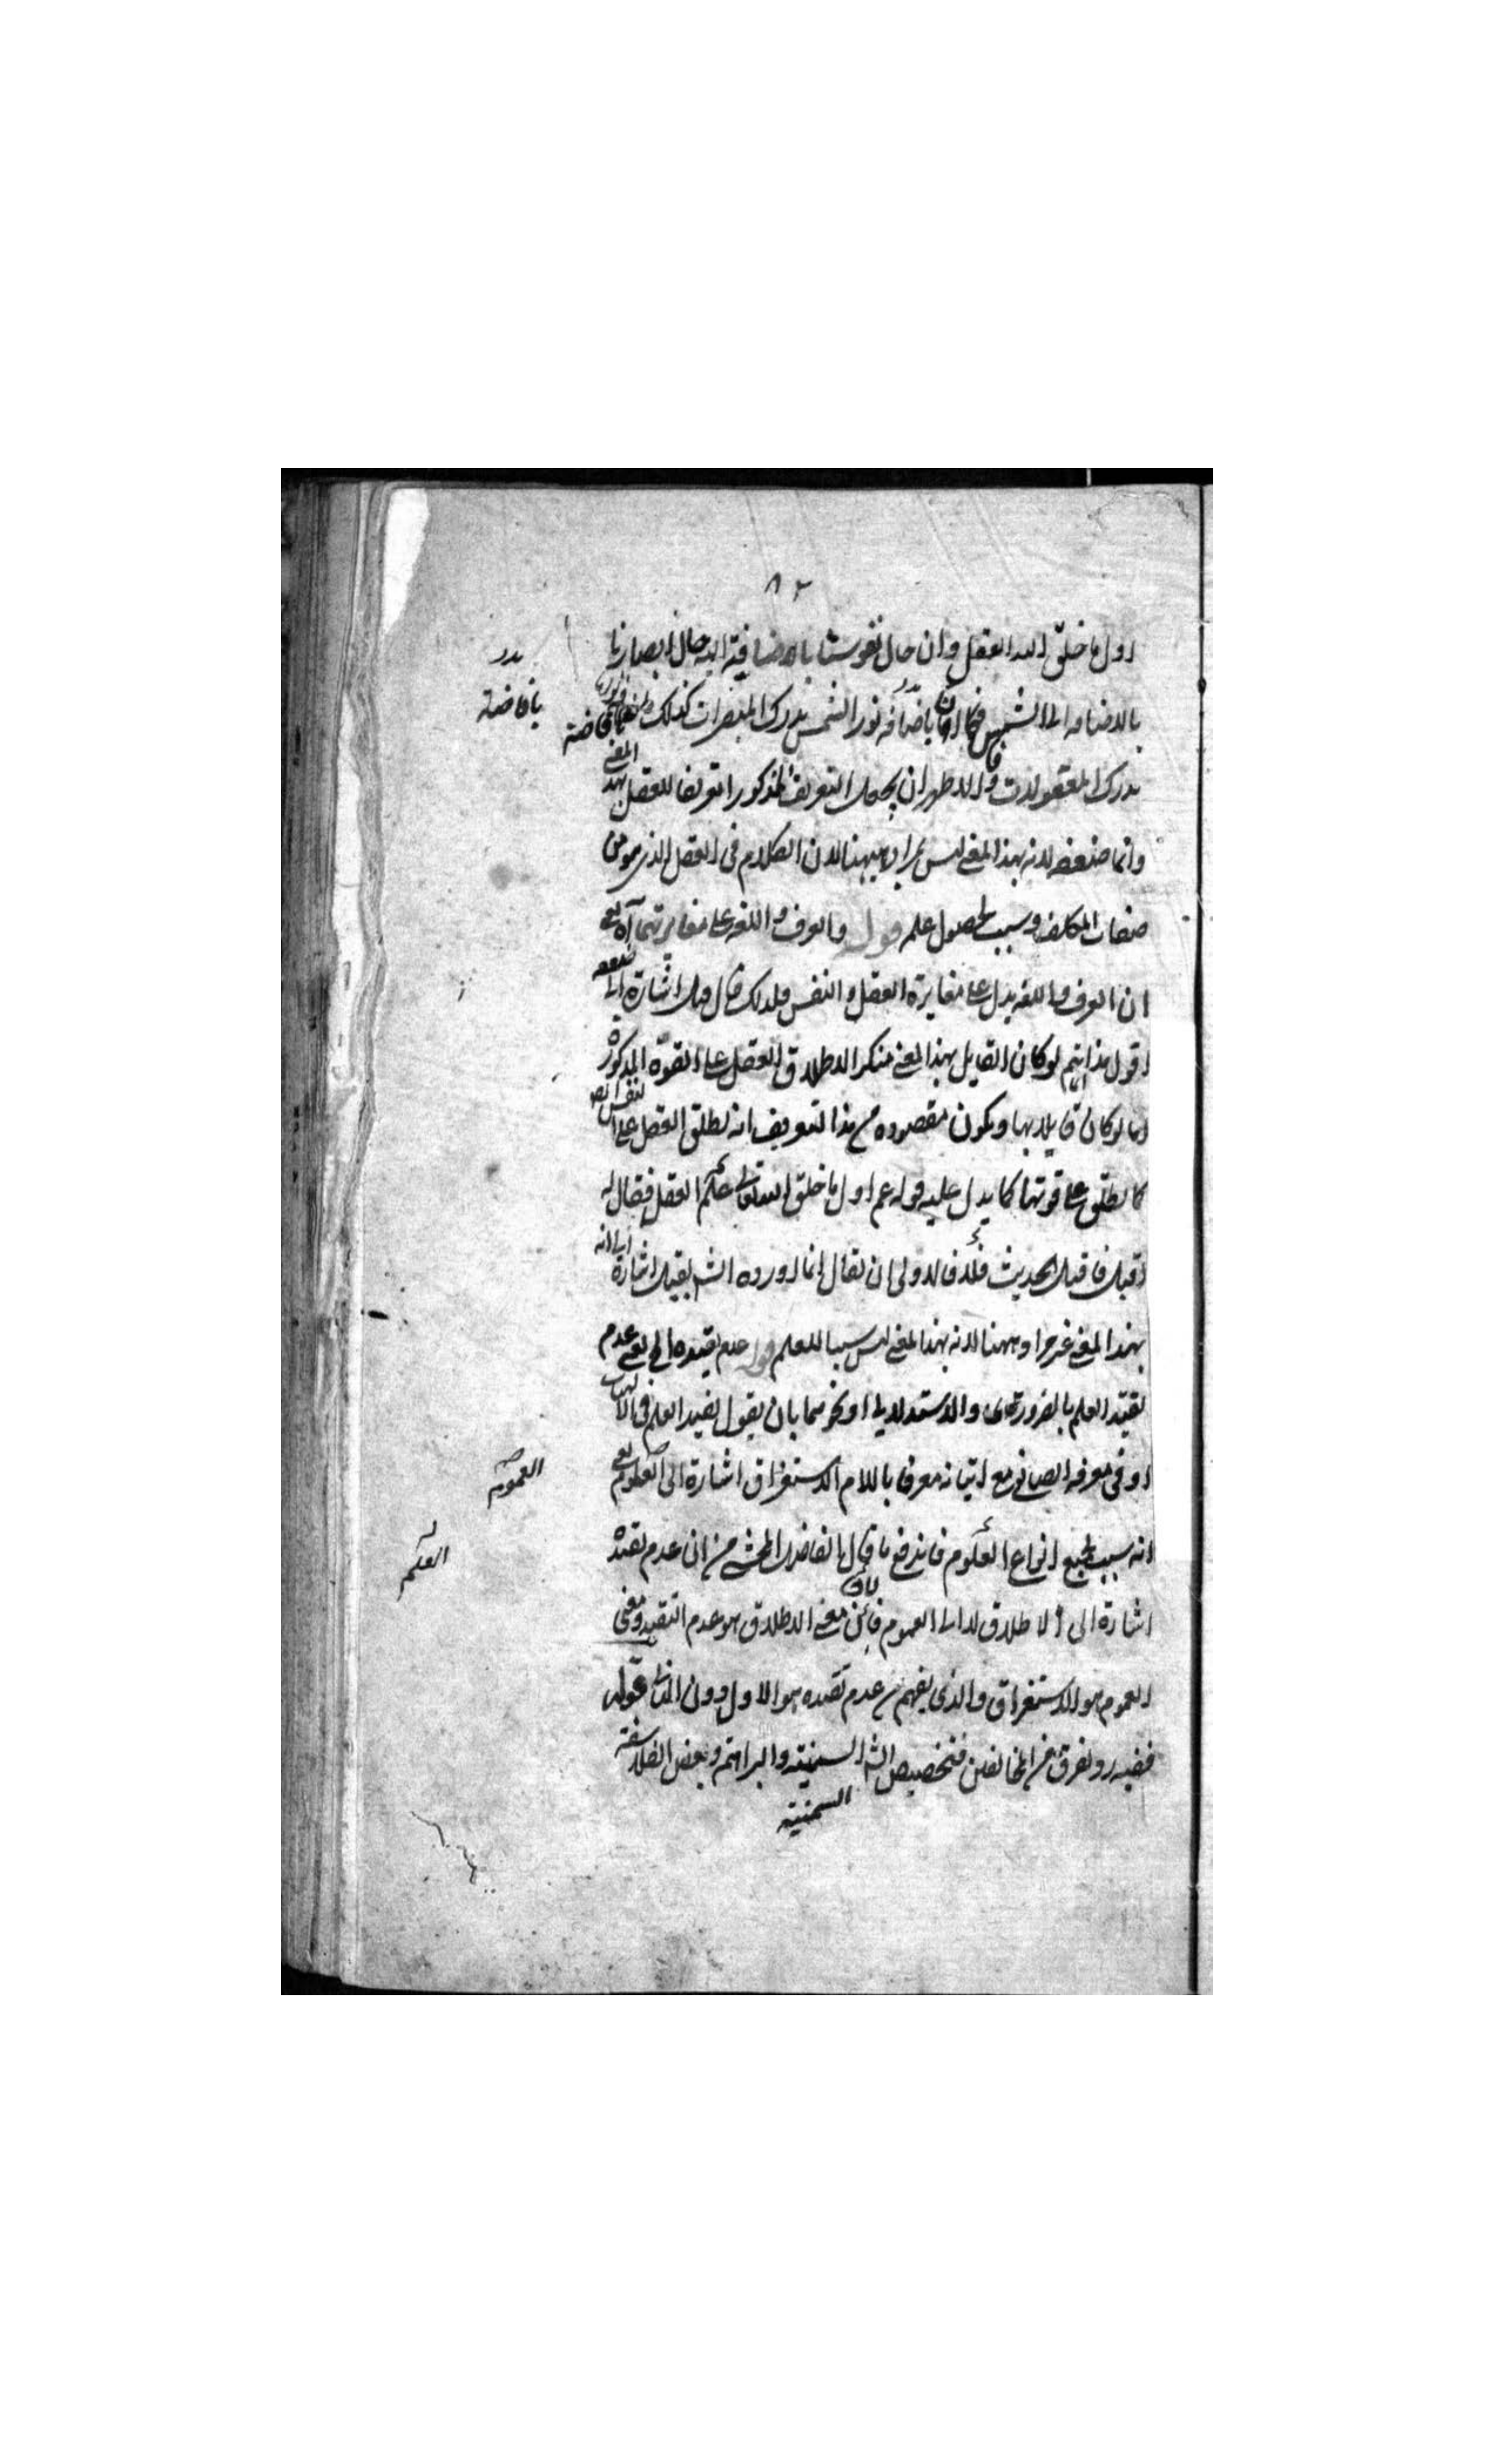 ٨٢
اول ما خلق الله العقل وان حال نفوسنا بالاضافة اليه حال ابصارنا
بالاضافه الى الشمس فكما ان باضافه نور الشمس يدرك المبصرات كذلك بافاضة
بافاضة
يدرك المعقولات والاظهر ان يجعل التعريف المذكور تعريفا للعقل بهذا المعنى
وانما ضعفه لانه بهذا المعنى ليس بمراد ههنا لان الكلام فى العقل الذى هو من
صفات المكلف وسبب لحصول علم قوله والعرف واللغه على مغايرتهما آه يعنى
ان العرف واللغه يدل على مغايرة العقل والنفس فلذلك قال قيل اشارة الى ضعفه
اقول هذا انما يتم لو كان القايل بهذا المعنى منكرا لاطلاق العقل على القوة المذكورة
اما لو كان قايلا بها ويكون مقصوده من هذا التعريف انه يطلق العقل على النفس ايضا
كما يطلق على قوتها كما يدل عليه قوله عم اول ما خلق الله تعالى العقل فقال له
اقبل فاقبل الحديث فلا فالاولى ان يقال انما اورده الش بقيل اشارة الى انه
بهذا المعنى غير مراد ههنا لانه بهذا المعنى ليس سببا للعلم قوله عدم تقيده الخ يعنى عدم
تقيد العلم بالضرورى والاستدلالى او نحوهما بان يقول يفيد العلم فى الالهيات
او فى معرفه الصانع مع اتيانه معرفا باللام الاستغراق اشارة الى العموم يعنى
العموم
انه سبب لجميع انواع العلوم فاندفع ما قال الفاضل المحشى من ان عدم تقيده
العلم
اشارة الى الاطلاق لا الى العموم فان معنى الاطلاق هو عدم التقيد ومعنى
العموم هو الاستغراق والذى يفهم من عدم تقيده هو الاول دون الثانى قوله
ففيه رد لفرق من المخالفين فتخصيص الش السمنية والبراهمه وبعض الفلاسفة
السمنية